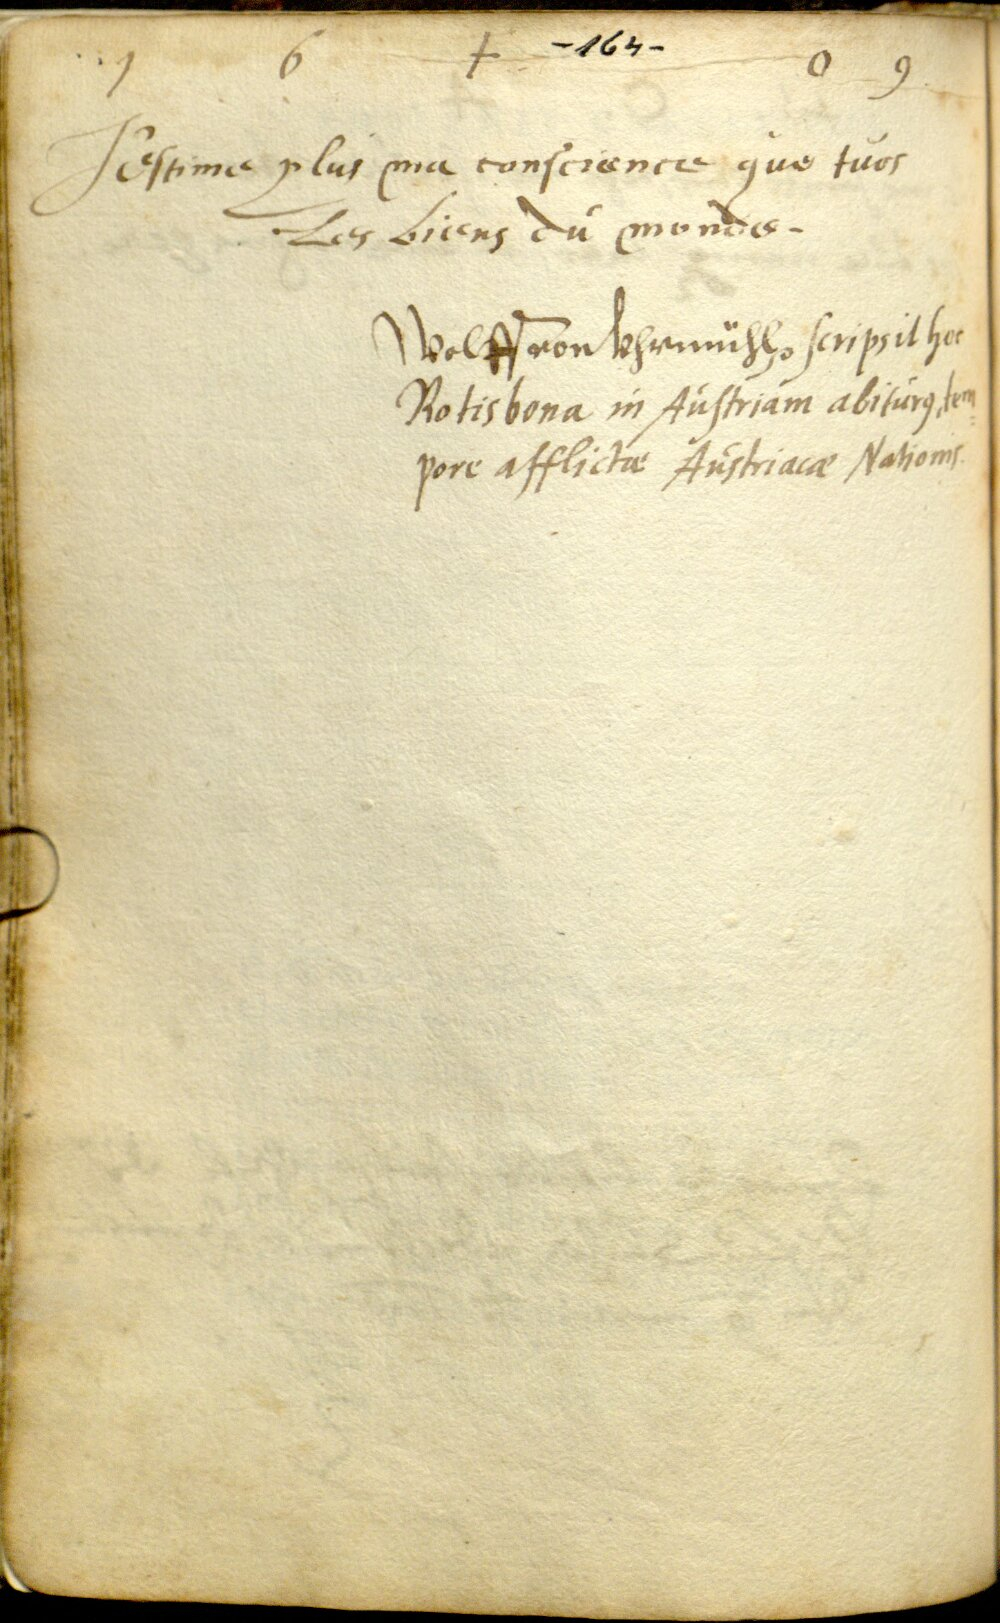 1 6 † -164- 0 9
J'estime plus ma conscience que tuos
Les biens du monde-
Wolff von scripsit hec
Rotisbona in Austriam abiturq tem=
pore afflictæ Austriacæ Nationis.